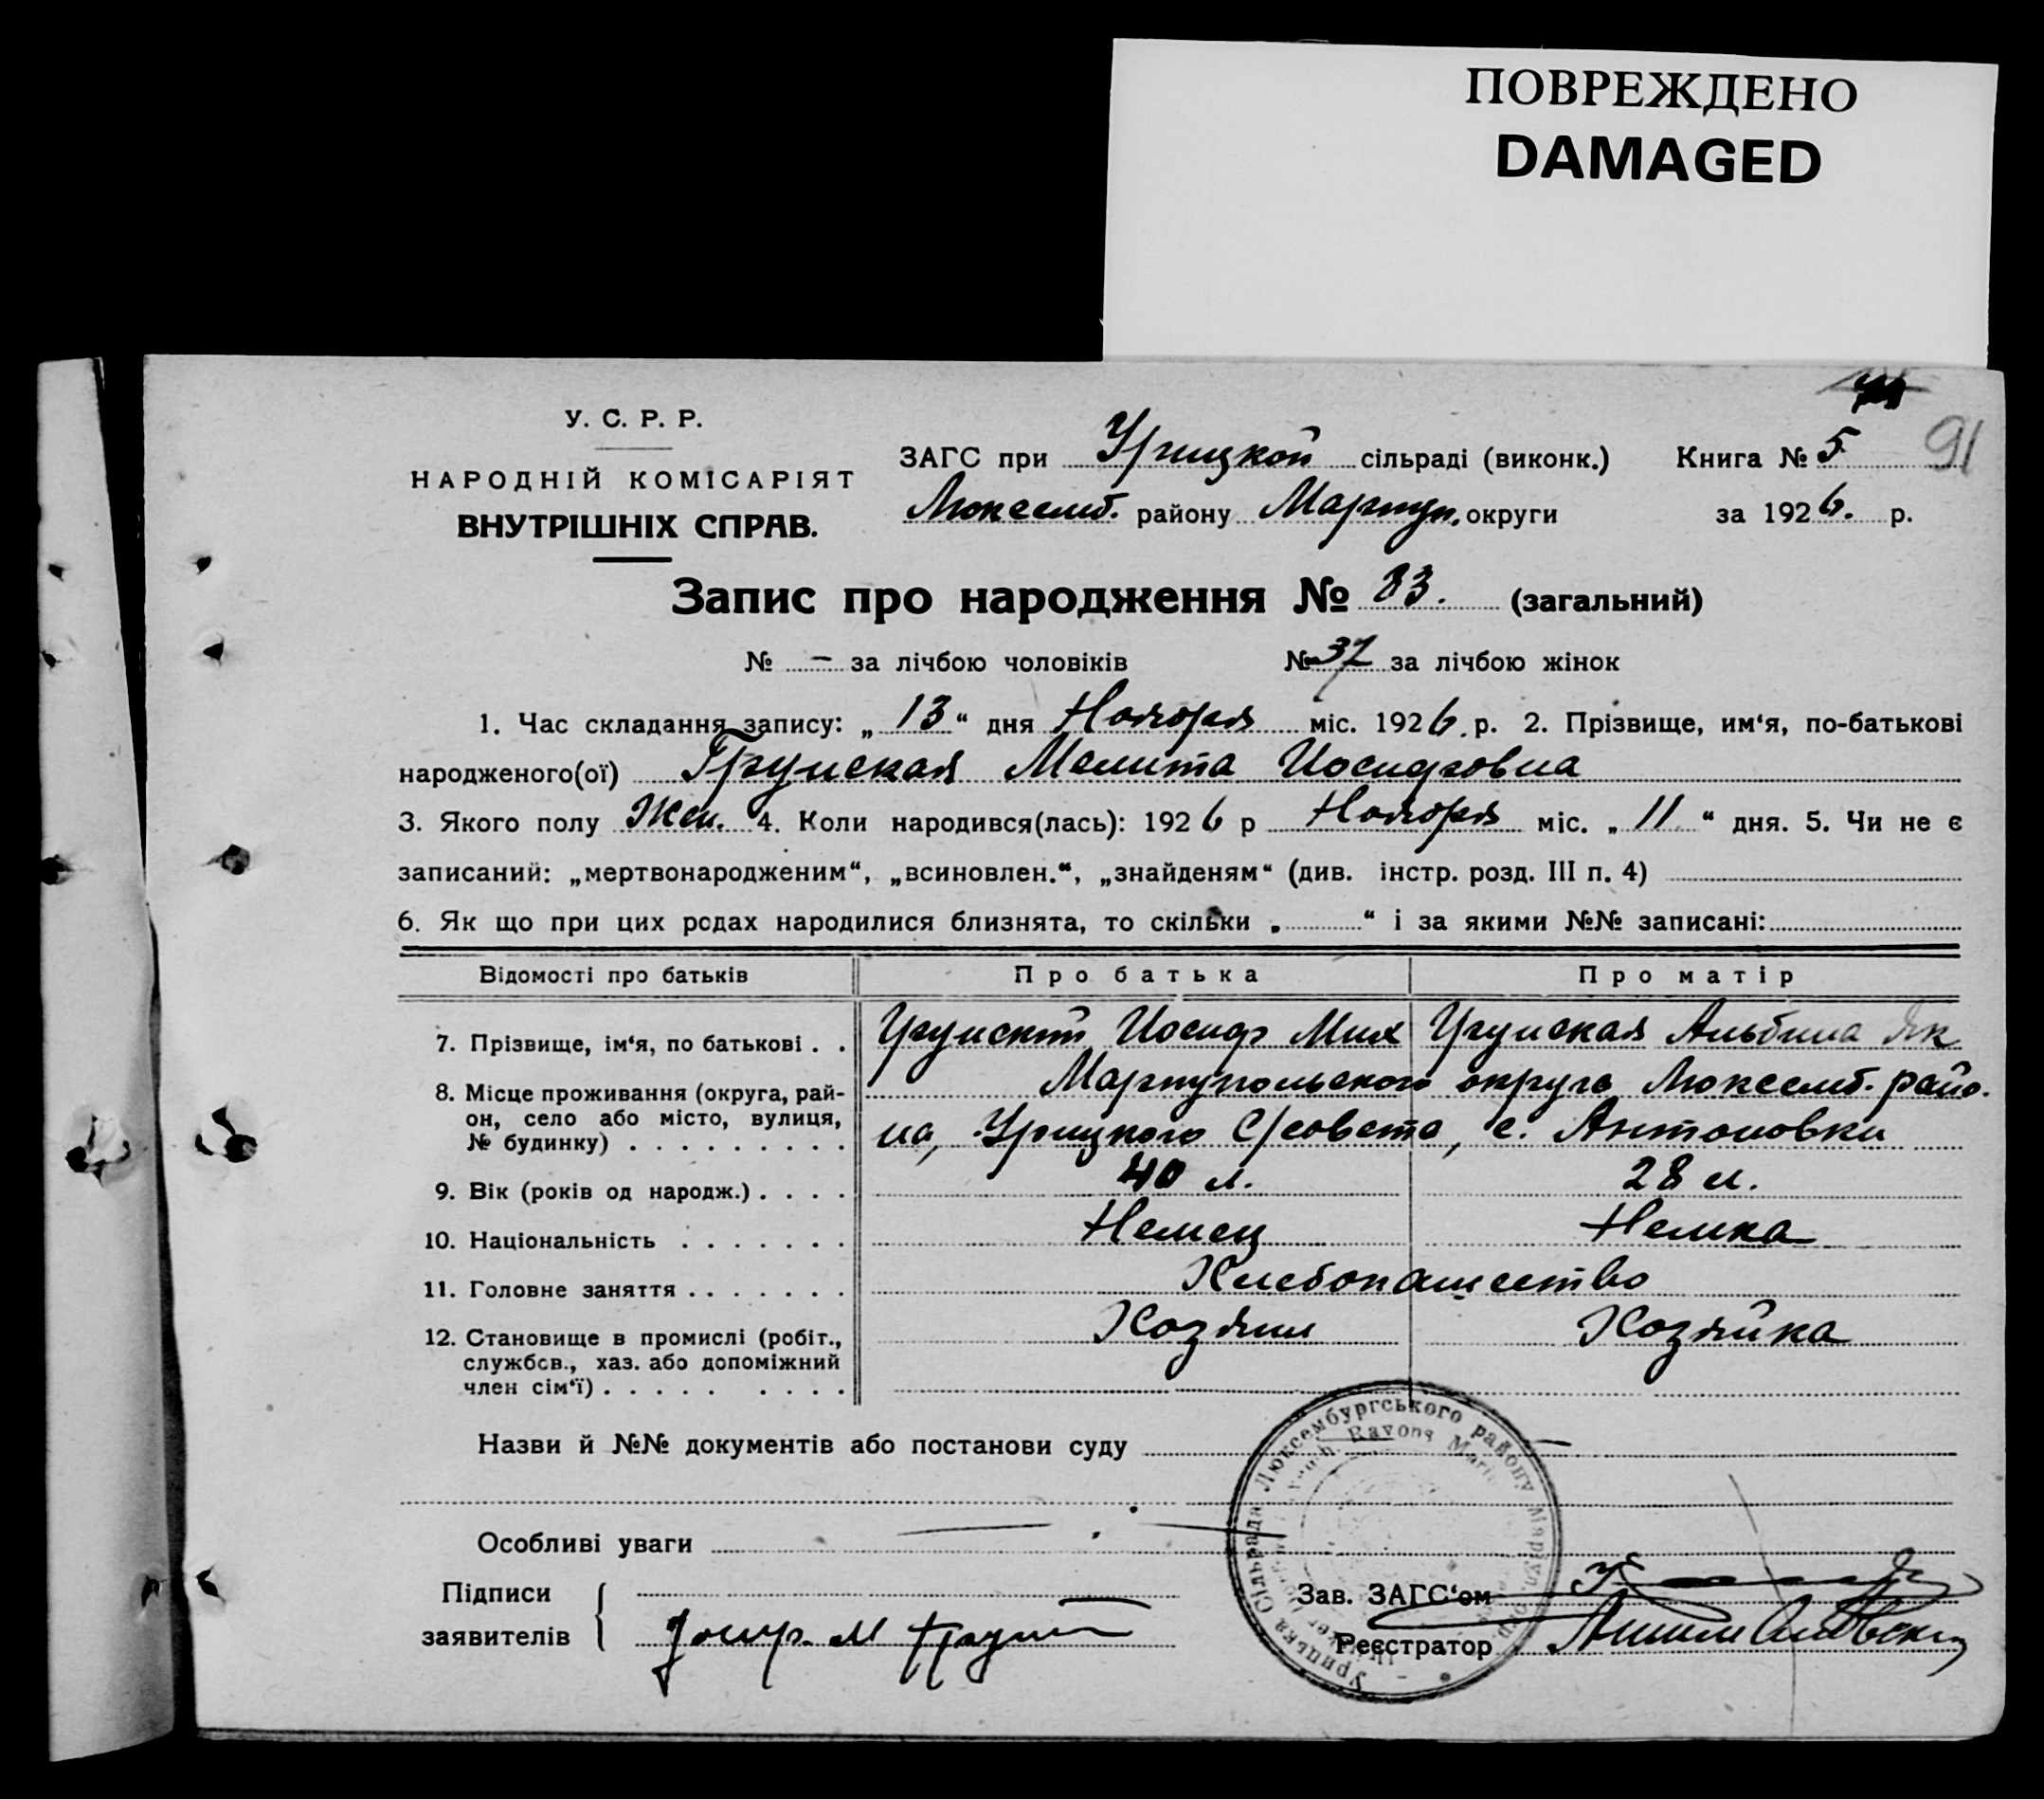 ПОВРЕЖДЕНО
DAMAGED
91
У. С. Р. Р.
НАРОДНІЙ КОМІСАРІЯТ
ВНУТРІШНІХ СПРАВ.
ЗАГС при Урицкой сільраді (виконк.) Книга № 5
Люксемб. району Мариуп. округи за 1926. р.
Запис про народження № 83. (загальний)
№ – за лічбою чоловіків № 37 за лічбою жінок
1. Час складання запису: „ 13 “ дня Ноября міс. 1926. р. 2. Прізвище, им‘я, по-батькові
народженого(ої) Грунская Мелита Иосифовна
3. Якого полу Жен. 4. Коли народився(лась): 1926 р Ноября міс. „ 11 “ дня. 5. Чи не є
записаний: „мертвонародженим“, „всиновлен.“, „знайденям“ (див. інстр. розд. III п. 4)
6. Як що при цих родах народилися близнята, то скільки „ “ і за якими №№ записані:
Відомості про батьків Про батька Про матір
7. Прізвище, ім‘я, по батькові . . Иосиф Мих Альбина Як
8. Місце проживання (округа, рай-
он, село або місто, вулиця,
№ будинку) . . . . . . . . .
Мариупольского округа Люксемб. райо.
на, Урицкого С/совета, с. Антоновки
9. Вік (років од народж.) . . . . 40 л. 28 л.
10. Національність . . . . . . . Немец Немка
11. Головне заняття . . . . . . . Хлебопашество
12. Становище в промислі (робіт.,
службов., хаз. або допоміжний
член сім‘ї) . . . . . . . . .
Хозяин Хозяйка
Назви й №№ документів або постанови суду –
Особливі уваги
Підписи
заявителів
Зав. ЗАГС‘ом
Реєстратор
Урицька Сільрада Люксембургського району Маріуп. окр.